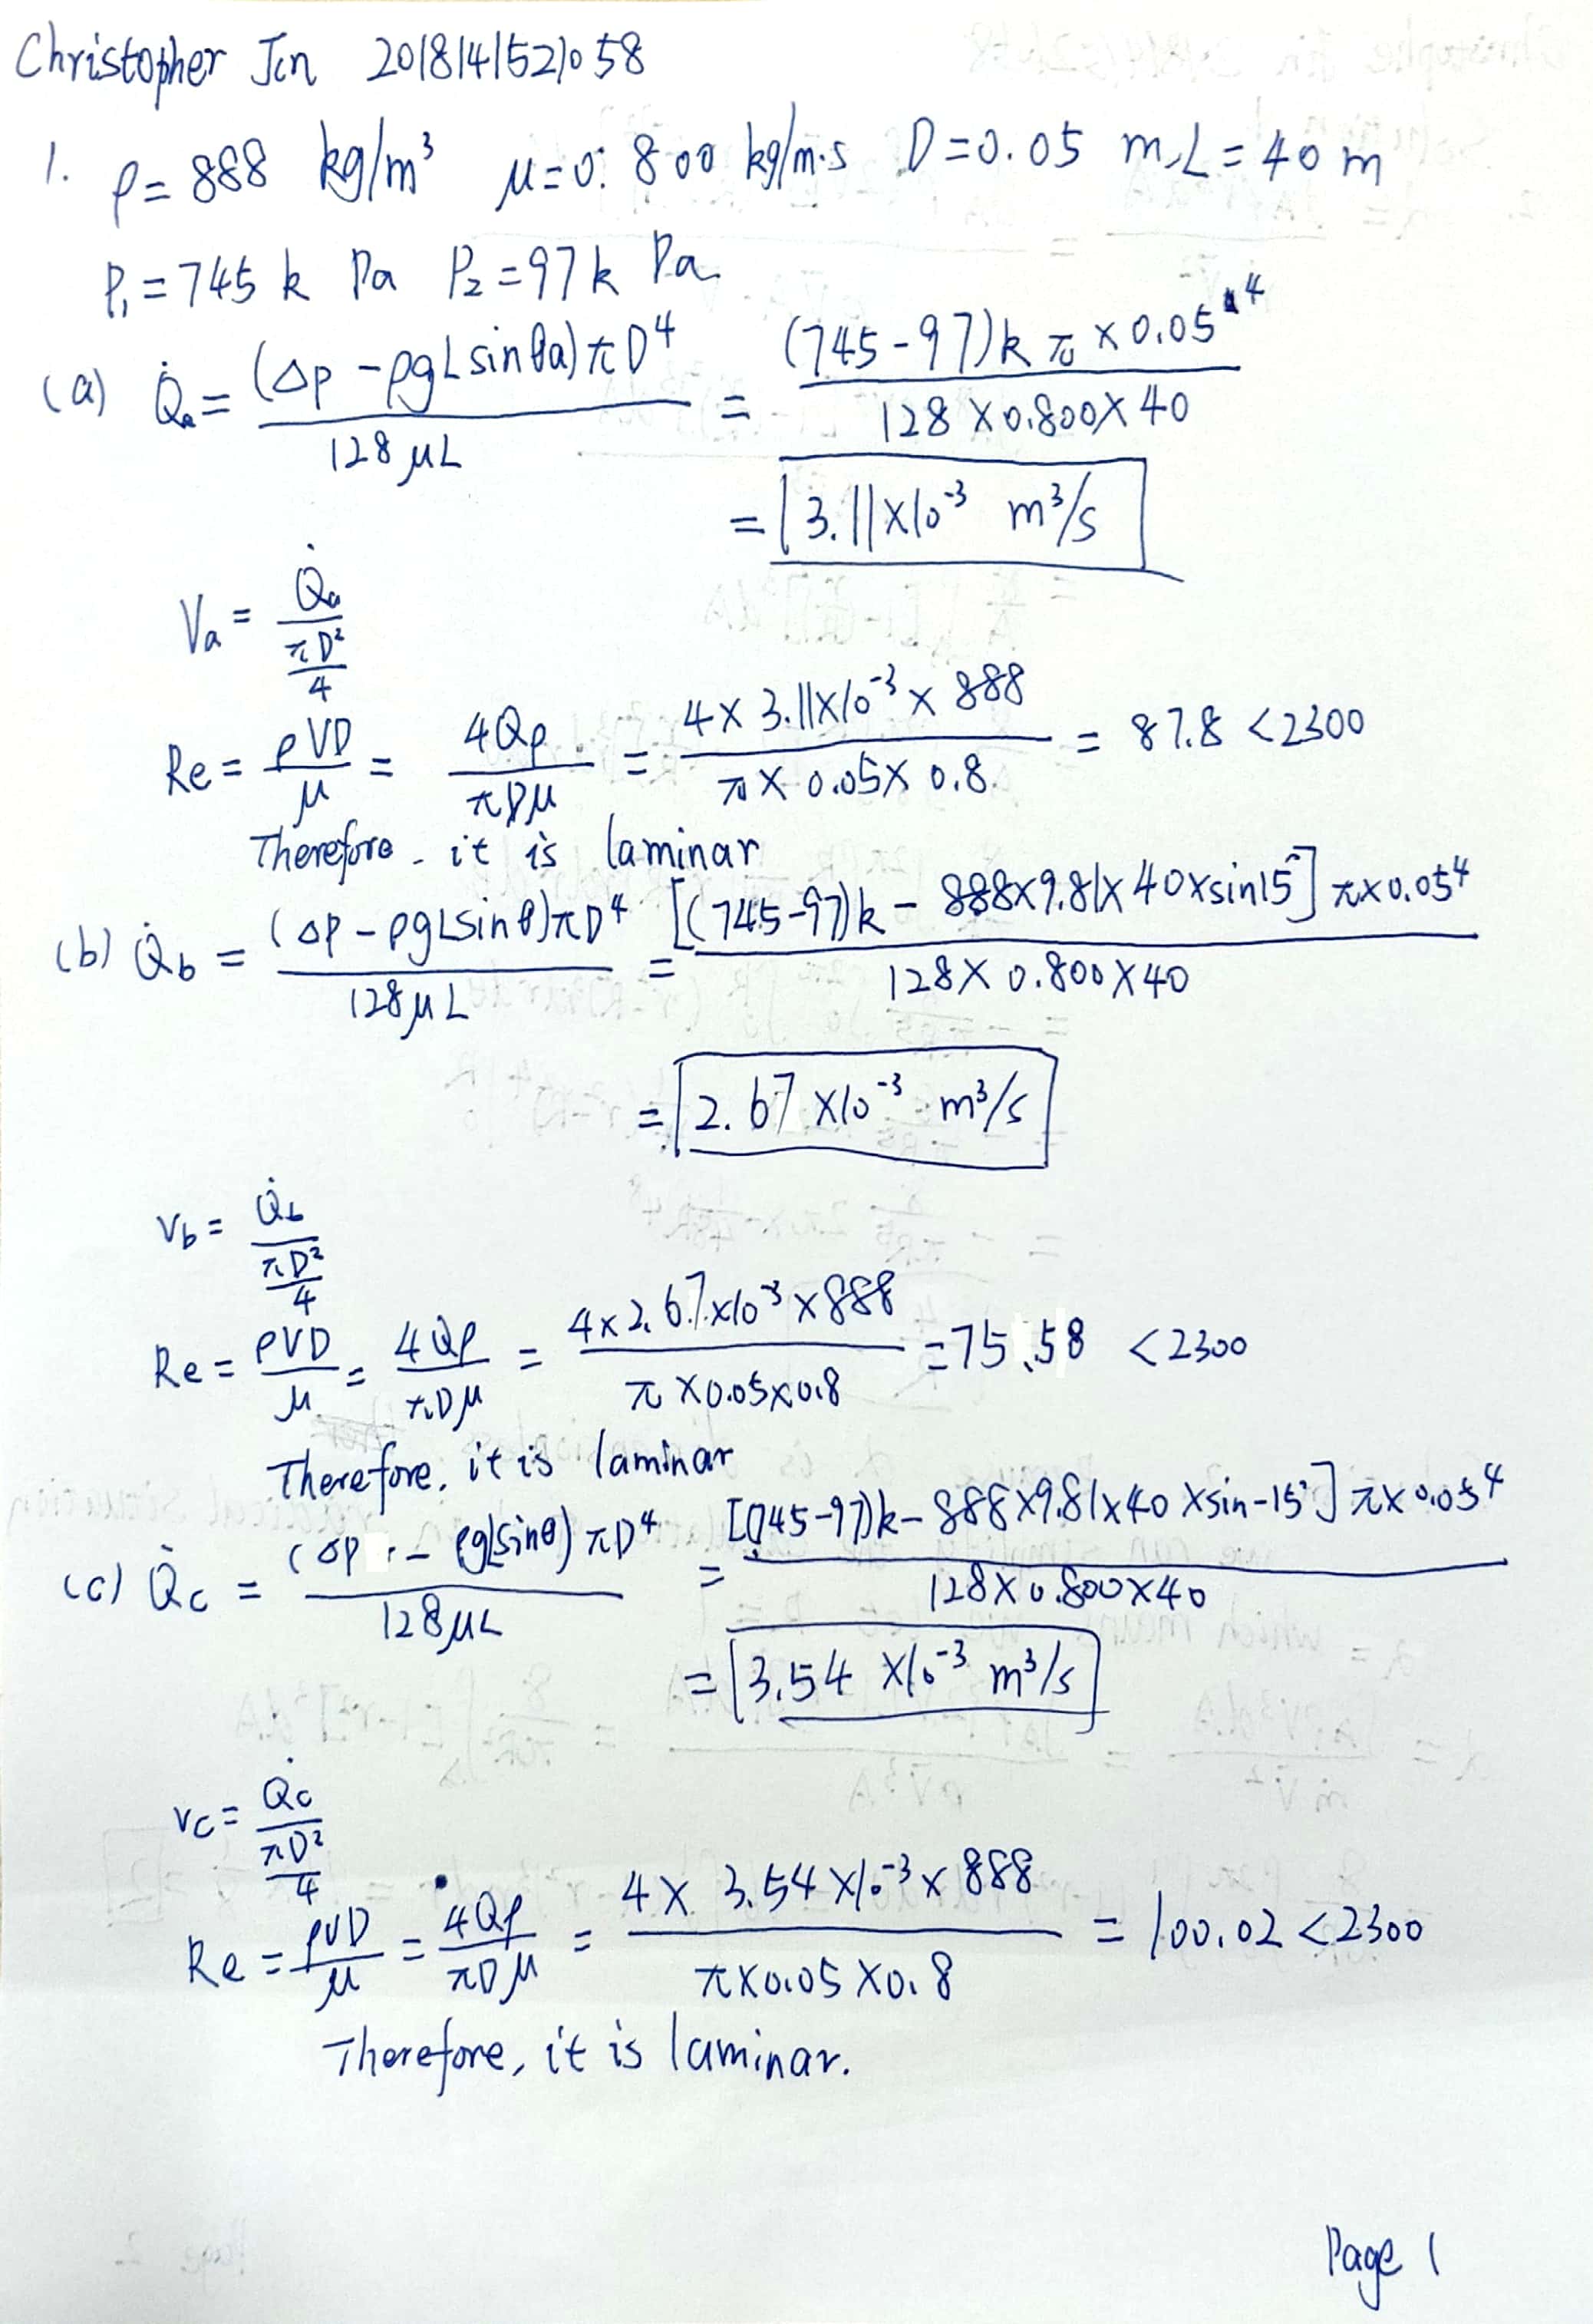 Christopher Jin 2018141521058
1. ρ = 888 kg/m³ μ = 0.800 kg/m·s D = 0.05 m, L = 40 m
P₁ = 745 k Pa P₂ = 97 k Pa
(a) Q̇a = (Δp - ρgL sin θa) π D⁴ / 128 μL = (745 - 97) k π × 0.05⁴ / 128 × 0.800 × 40
= 3.11 × 10⁻³ m³/s
Va = Q̇a / (πD²/4)
Re = ρVD/μ = 4Qρ/πDμ = 4 × 3.11 × 10⁻³ × 888 / π × 0.05 × 0.8 = 87.8 < 2300
Therefore, it is laminar
(b) Q̇b = (Δp - ρgL sin θ) π D⁴ / 128 μL = [(745 - 97) k - 888 × 9.81 × 40 × sin 15°] π × 0.05⁴ / 128 × 0.800 × 40
= 2.67 × 10⁻³ m³/s
Vb = Q̇b / (πD²/4)
Re = ρVD/μ = 4Qρ/πDμ = 4 × 2.67 × 10⁻³ × 888 / π × 0.05 × 0.8 = 75.58 < 2300
Therefore, it is laminar
(c) Q̇c = (Δp - ρgL sin θ) π D⁴ / 128 μL = [(745 - 97) k - 888 × 9.81 × 40 × sin -15°] π × 0.05⁴ / 128 × 0.800 × 40
= 3.54 × 10⁻³ m³/s
Vc = Q̇c / (πD²/4)
Re = ρVD/μ = 4Qρ/πDμ = 4 × 3.54 × 10⁻³ × 888 / π × 0.05 × 0.8 = 100.02 < 2300
Therefore, it is laminar.
Page 1